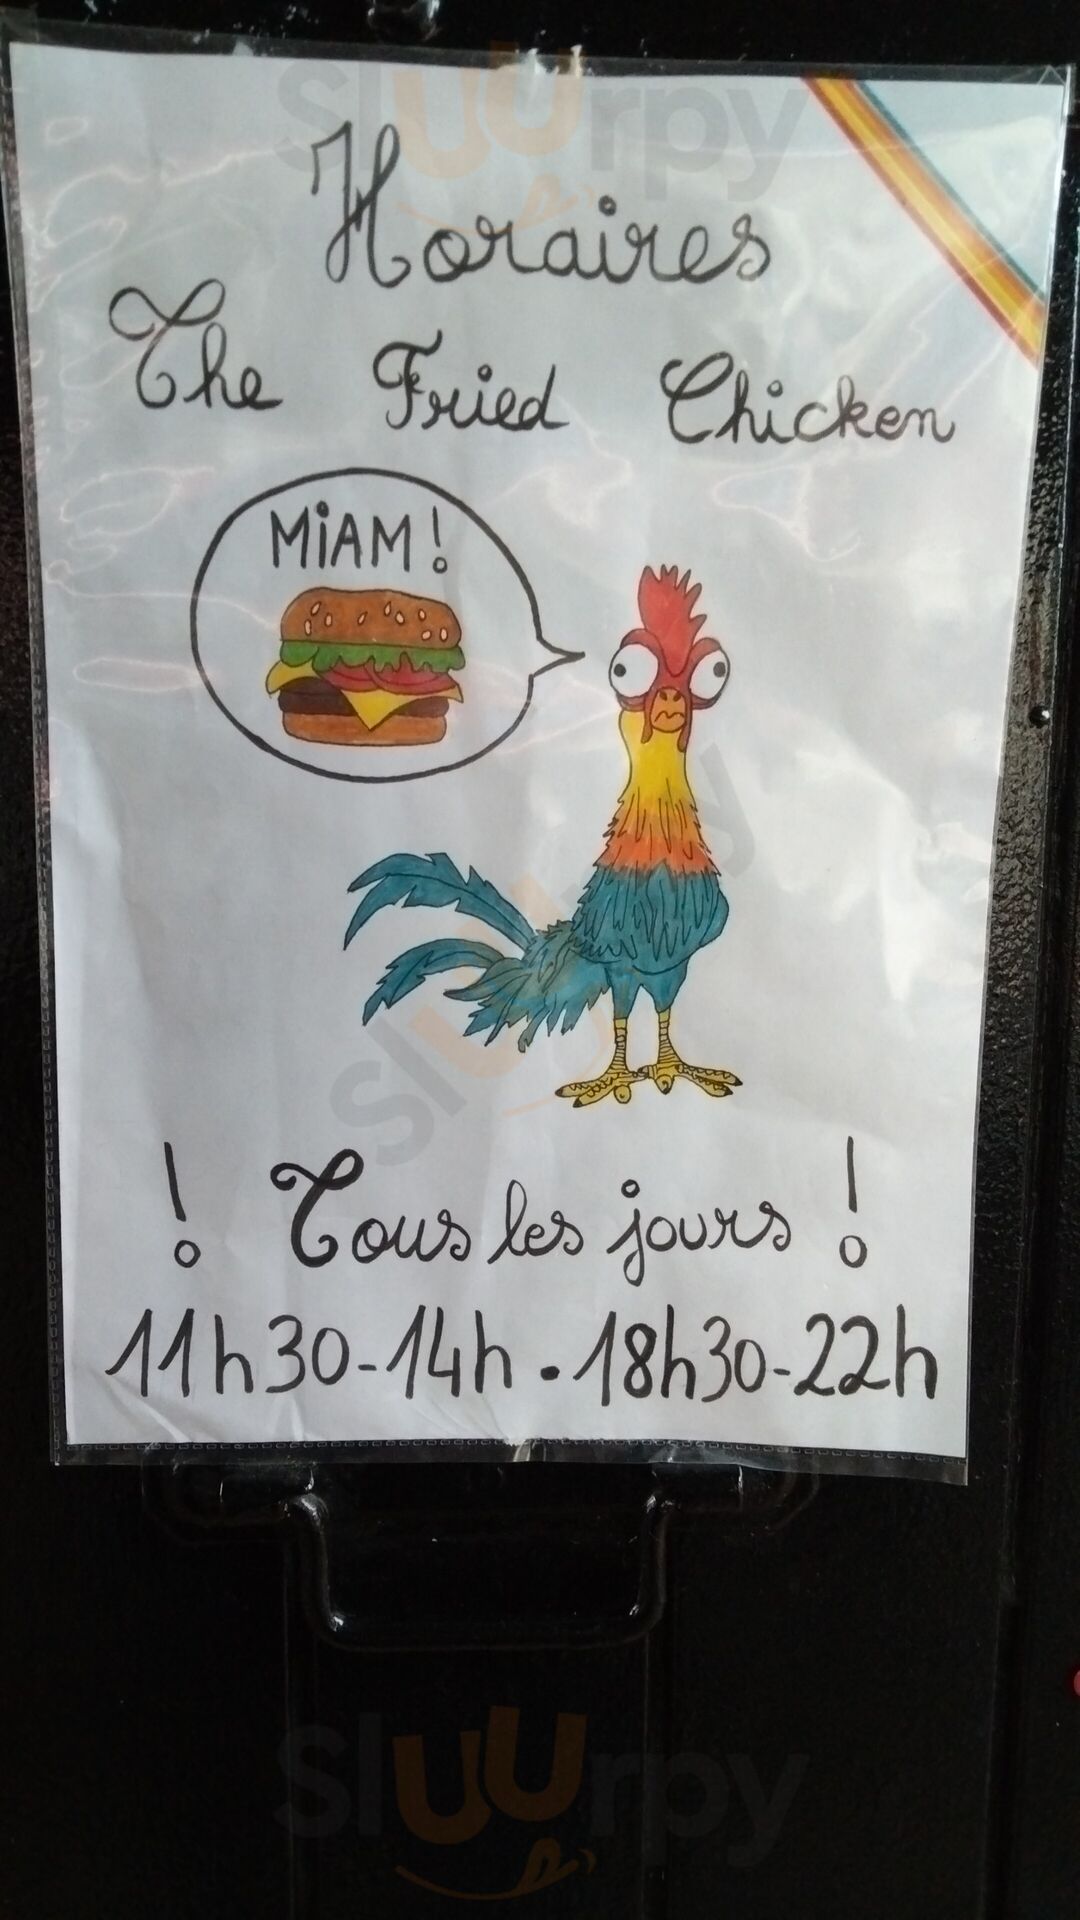 Sluurpy
Horaires
The Fried Chicken
MiAM !
Sluurpy
! Tous les jours !
11h30-14h . 18h30-22h
Sluurpy